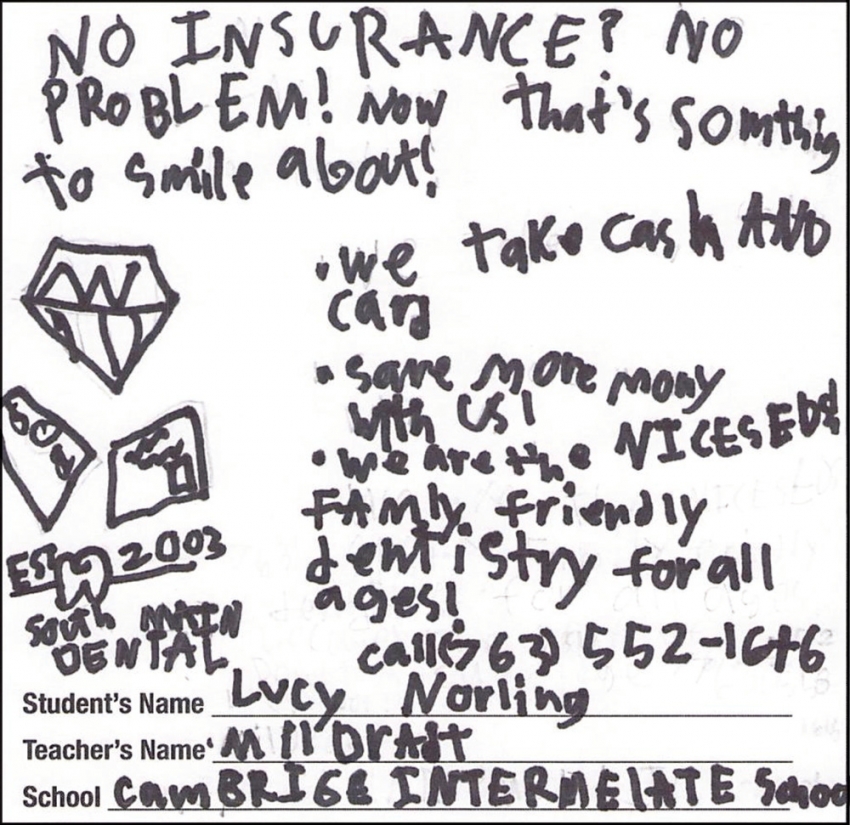 NO INSURANCE? NO
PROBLEM! NOW that's somthing
to smile about!
• we take cash AND
card
• save more mony
with US!
• we are the NICESEDS
FAMly friendly
dentistry for all
ages!
EST 2003
SOUTH MAIN
DENTAL
call (763) 552-1646
Student's Name Lucy Norling
Teacher's Name
School CAMBRIGE INTERMELATE School